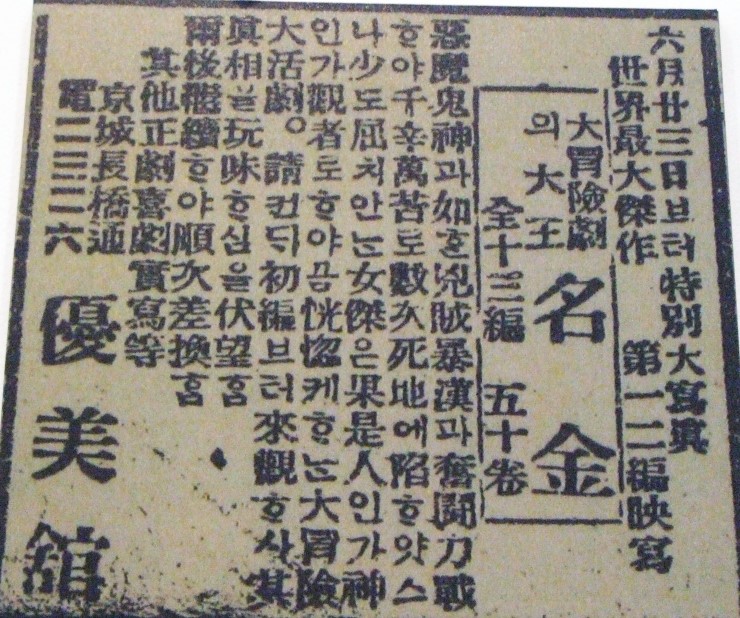 六月廿三日브터特別大寫眞
世界最大傑作 第一二編映寫
大冒險劇
의大王
名金
全十三編 五十卷
惡魔鬼神과如ᄒᆞᆫ兇賊暴漢과奮鬪力戰
ᄒᆞ야千辛萬苦도數次死地에陷ᄒᆞ얏스
나少도屈치안는女傑은果是人인가神
인가觀者도ᄒᆞ야곰恍惚케ᄒᆞ는大冒險
大活劇。請컨ᄃᆡ初編브터來觀ᄒᆞ사其
眞相을玩味ᄒᆞ심을伏望홈
爾後繼續ᄒᆞ야順次差換홈
其他正劇喜劇實寫等
京城長橋通
電二三二六
優美舘